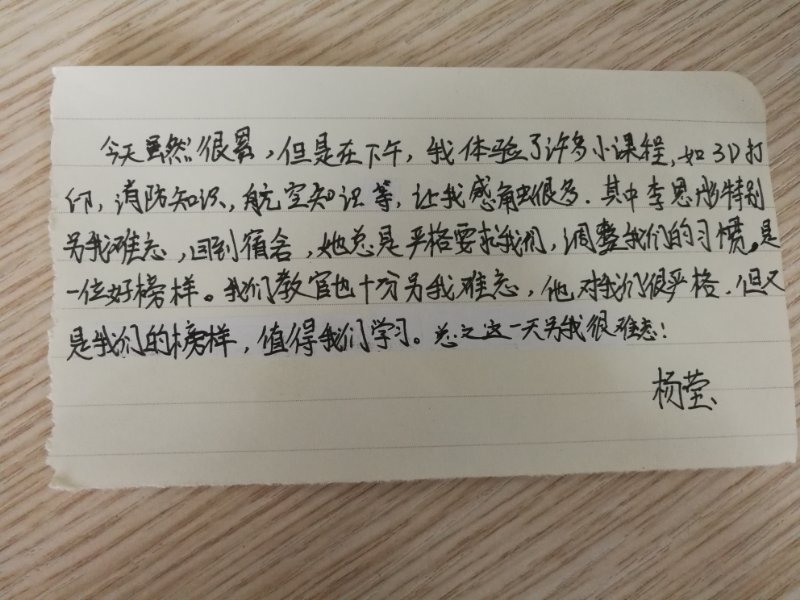 今天虽然很累,但是在下午,我体验了许多小课程,如3D打
印,消防知识,航空知识等,让我感触很多.其中李恩彤特别
另我难忘,回到宿舍,她总是严格要求我们,调整我们的习惯。是
一位好榜样。我们教官也十分另我难忘,他对我们很严格.但又
是我们的榜样,值得我们学习。总之这一天另我很难忘!
杨莹